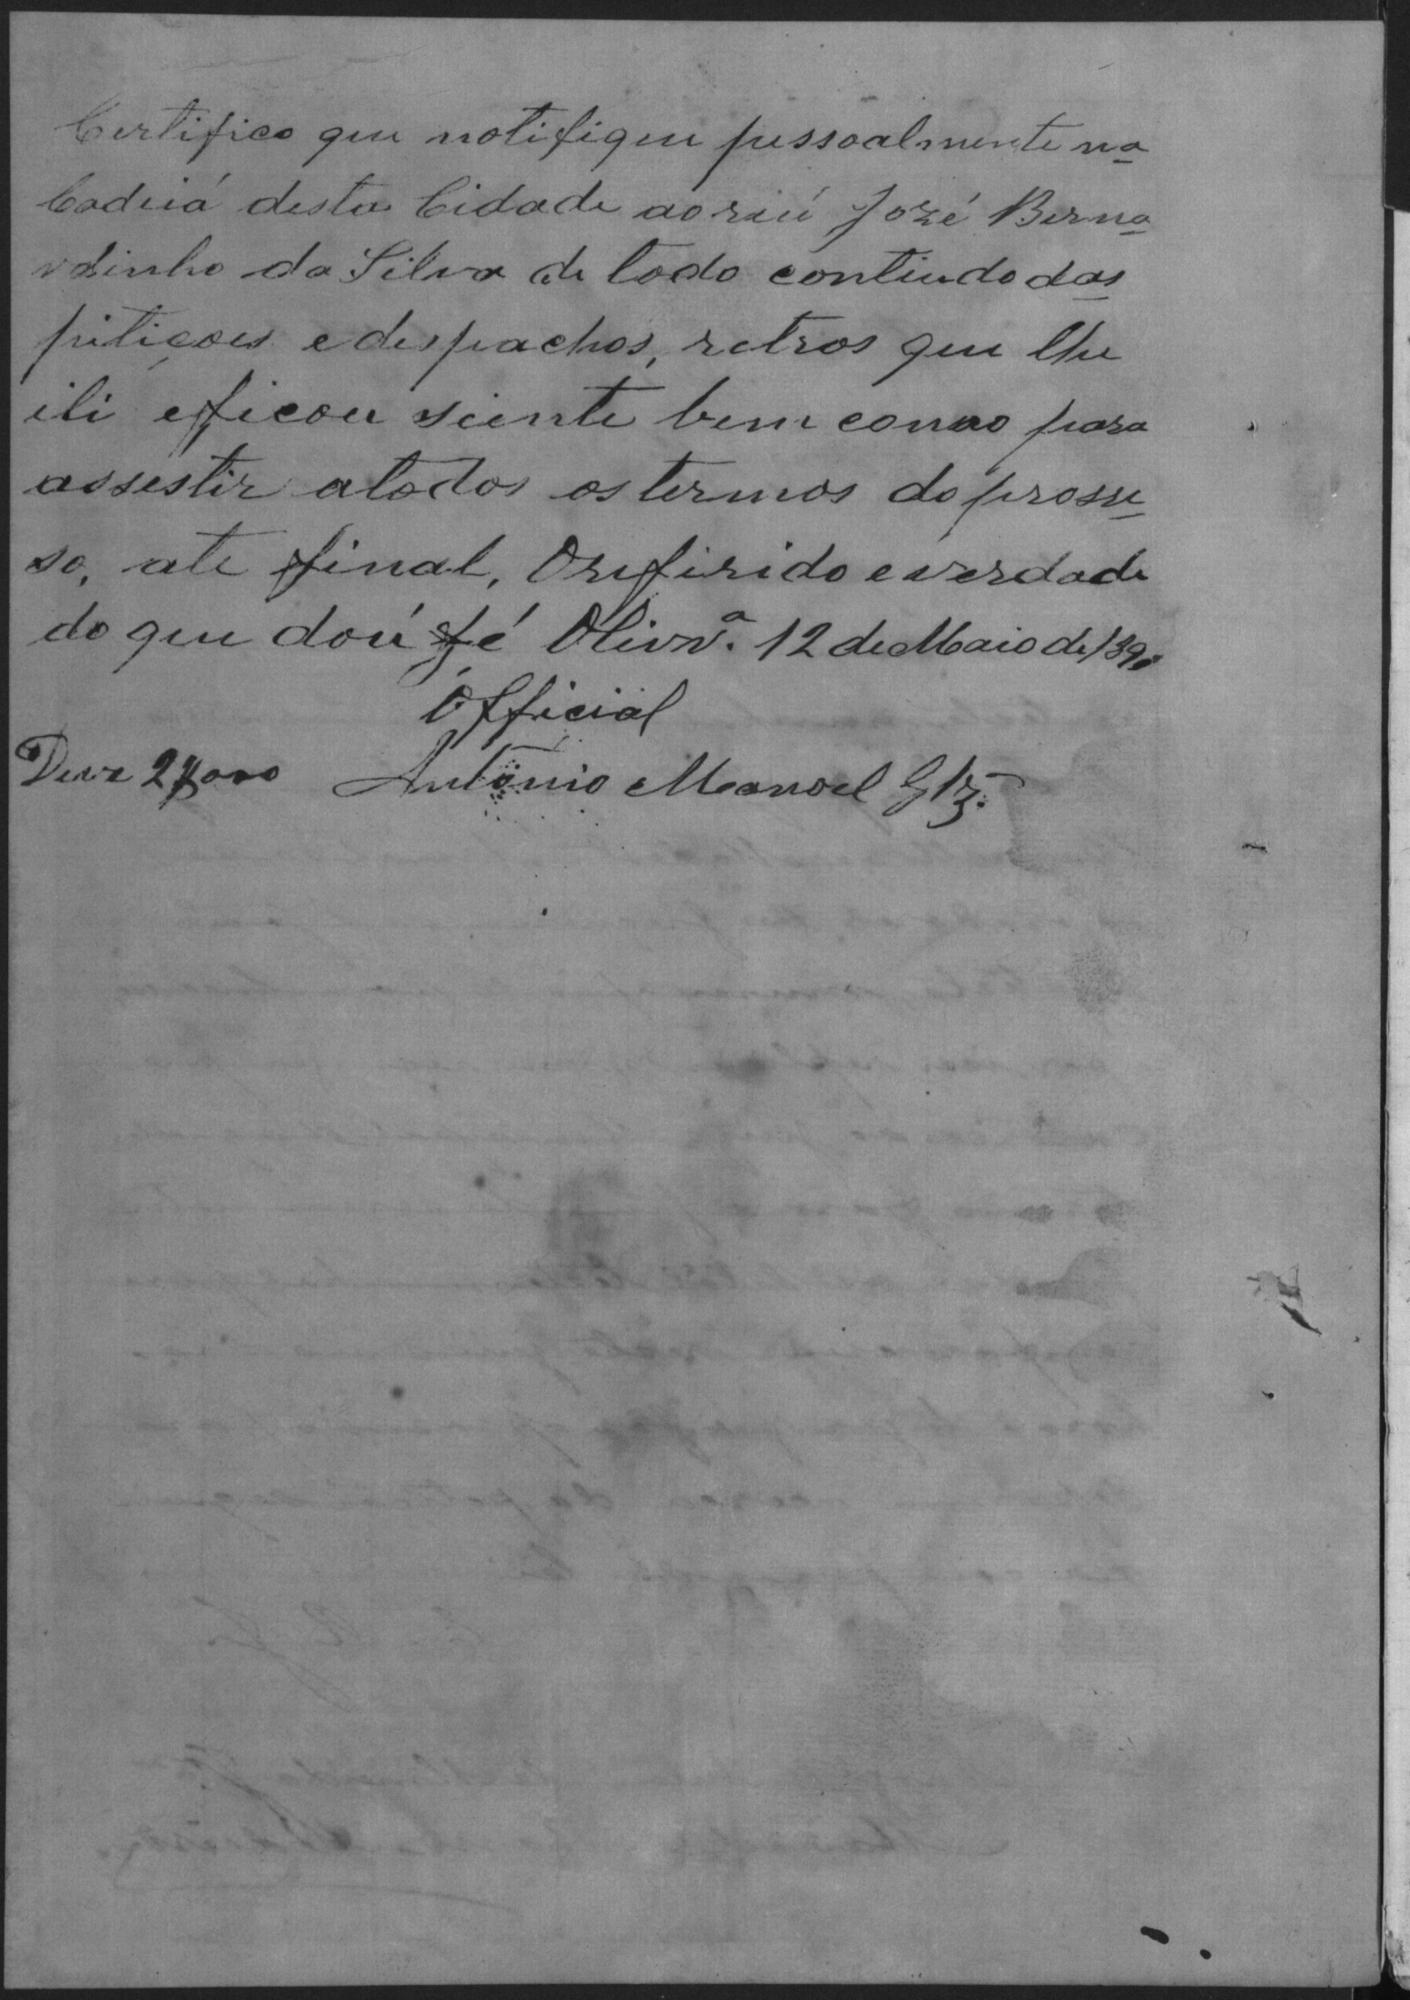 Certifico que notifiquei pessoalmente na
Cadeiá desta Cidade ao reú José Berna
rdinho da Silva de todo contiudo das
pitiçoes e despachos, retros que lhe
ili eficou sciente bem como para
assestir atodos os termos do prosse
so, ate final, Oreferido e verdade
do que doú fé Olivrª. 12 de Maio de 189
O Official
Antonio Manoel Glz.
Deve 2$000